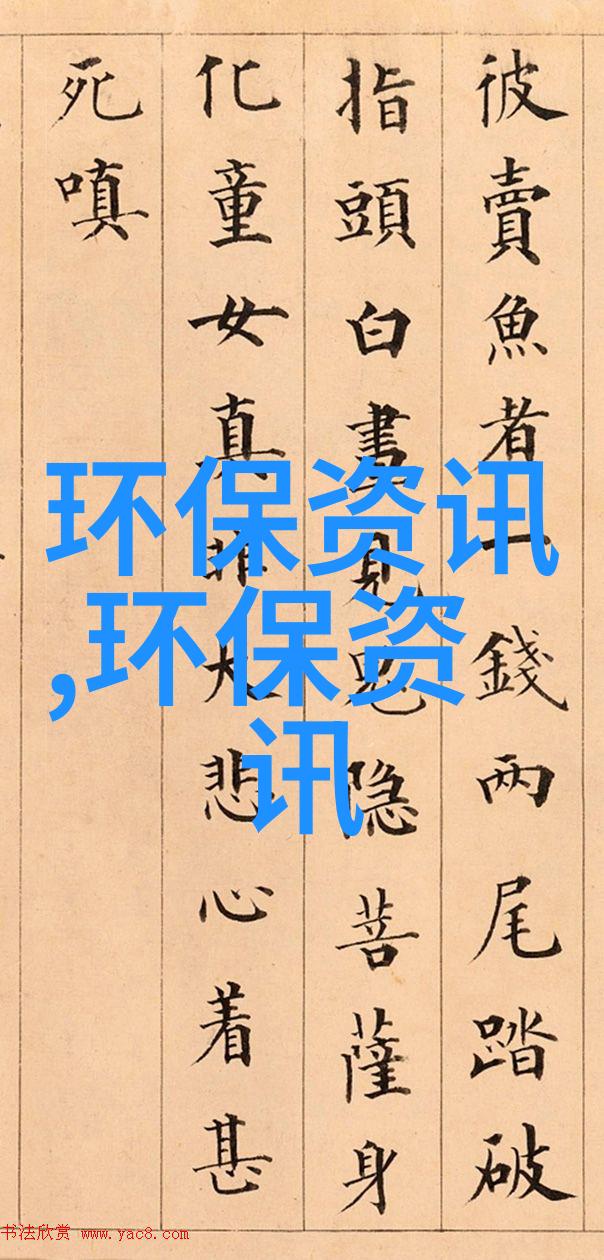 彼賣魚者一錢两尾踏破
指頭白晝見鬼隐菩薩身
化童女真非大悲心着甚
死嗔
环保资讯
,环保资
讯
书法欣赏 www.yac8.com